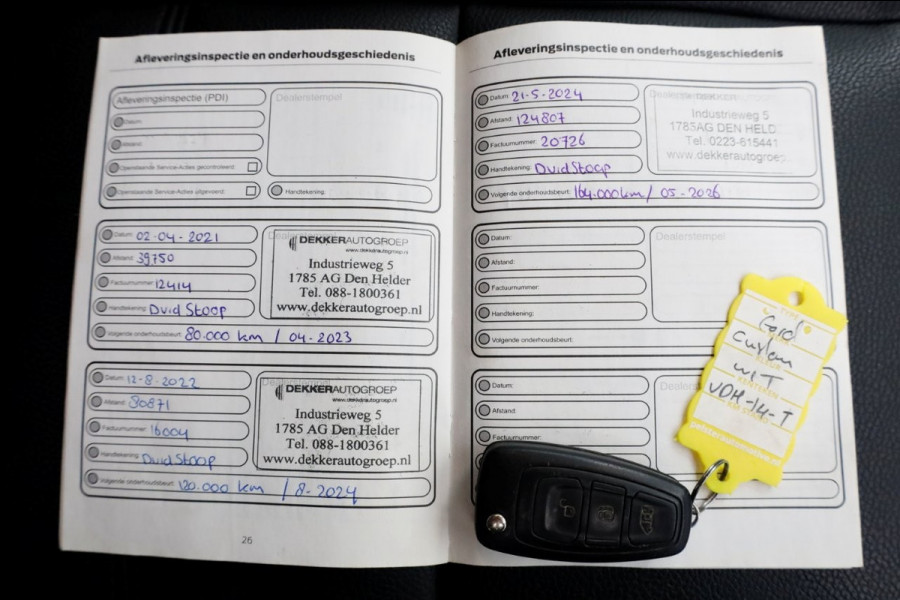 Afleveringsinspectie en onderhoudsgeschiedenis
Afleveringsinspectie (PDI)
Dealerstempel
Datum:
Afstand:
Openstaande Service-Acties gecontroleerd:
Openstaande Service-Acties uitgevoerd:
Handtekening:
Datum: 02-04-2021
Afstand: 39750
Factuurnummer: 12414
Handtekening: Dvid Stoop
Volgende onderhoudsbeurt: 80.000 km / 04-2023
DEKKERAUTOGROEP
www.dekkerautogroep.nl
Industrieweg 5
1785 AG Den Helder
Tel. 088-1800361
www.dekkerautogroep.nl
Datum: 12-8-2022
Afstand: 80871
Factuurnummer: 16004
Handtekening: Dvid Stoop
Volgende onderhoudsbeurt: 120.000 km / 8-2024
DEKKERAUTOGROEP
www.dekkerautogroep.nl
Industrieweg 5
1785 AG Den Helder
Tel. 088-1800361
www.dekkerautogroep.nl
26
Afleveringsinspectie en onderhoudsgeschiedenis
Datum: 21-5-2024
Afstand: 124807
Factuurnummer: 20726
Handtekening: Dvid Stoop
Volgende onderhoudsbeurt: 164.000 km / 05-2026
Industrieweg 5
1785AG DEN HELD
Tel. 0223-615441
www.dekkerautogroep
Datum:
Afstand:
Factuurnummer:
Handtekening:
Volgende onderhoudsbeurt:
Dealerstempel
Datum:
Afstand:
Factuurnummer:
Dealers
Ford
Custom
KLEUR
KENTEKEN
VDH-14-T